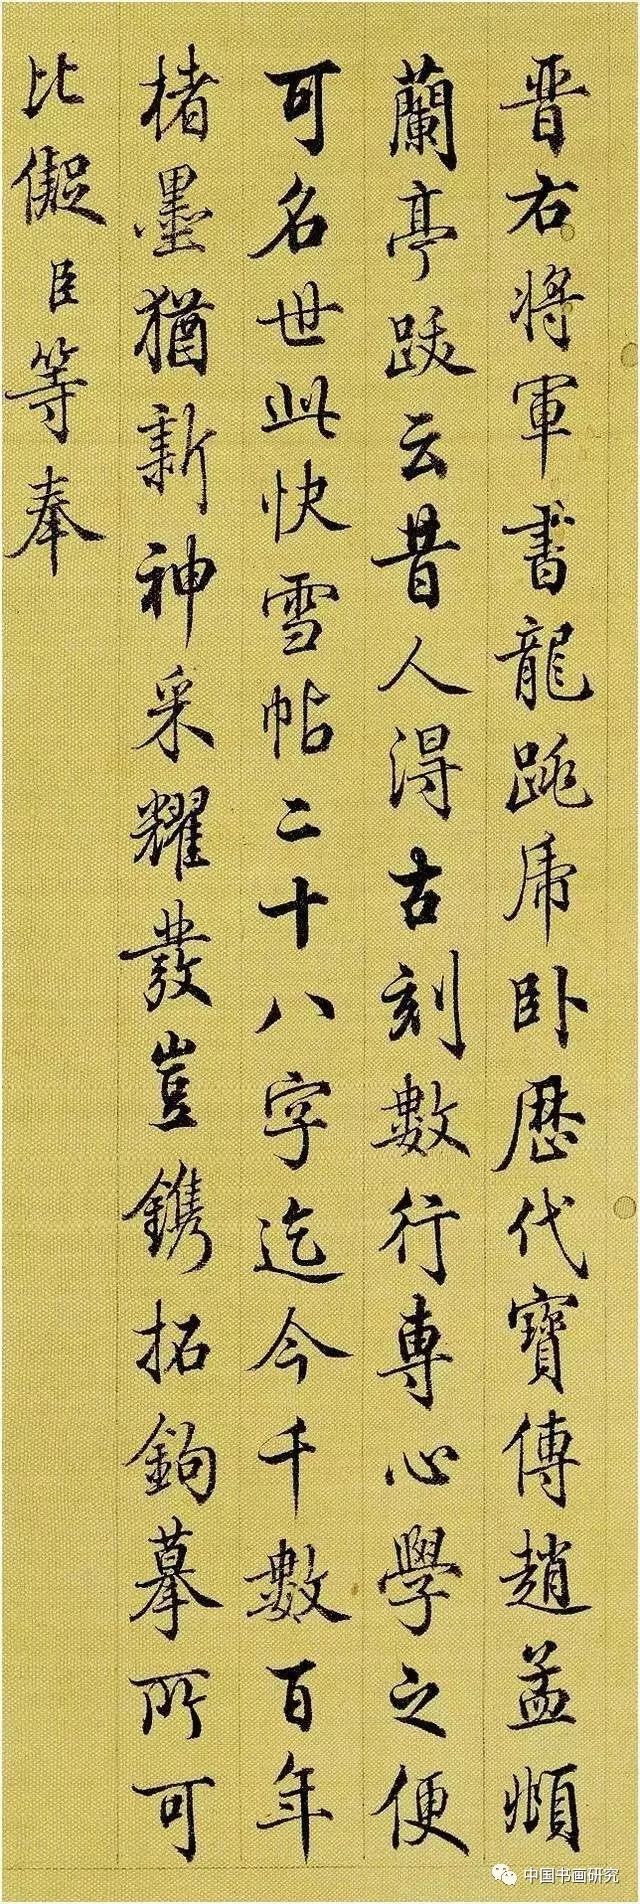 晋右将軍書龍跳虎卧歷代寶傳趙孟頫
蘭亭跋云昔人得古刻數行專心學之便
可名世此快雪帖二十八字迄今千數百年
楮墨猶新神采耀發豈鐫拓鉤摹所可
比儗臣等奉
中国书画研究